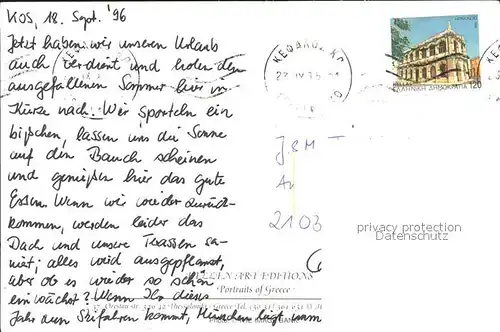 KOS, 18. Sept. '96
Jetzt haben wir unseren Urlaub
auch verdient und holen den
ausgefallenen Sommer hier in
Kürze nach. Wir sporteln ein
bißchen, lassen uns die Sonne
auf den Bauch scheinen
und genießen hier das gute
Essen. Wenn wir wieder zurück-
kommen, werden leider das
Dach und unsere Terassen sa-
niert; alles wird ausgepflanzt,
aber ob es wieder so schön
einwächst? Wenn Ihr dieses
Jahr zum Skifahren kommt, München liegt
ΕΛΛΗΝΙΚΗ ΔΗΜΟΚΡΑΤΙΑ 120
2103
privacy protection
Datenschutz
HELLEN ART EDITIONS
"Portraits of Greece"
Thessaloniki - Greece